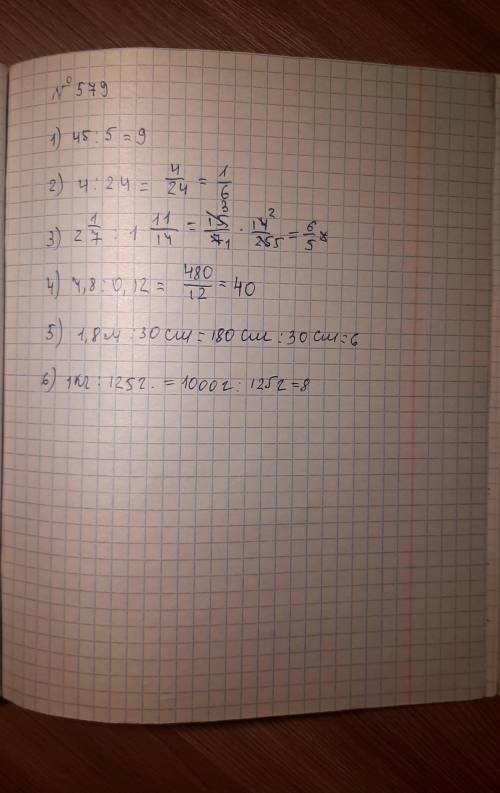 № 579
1) 45 : 5 = 9
2) 4 : 24 = 4/24 = 1/6
3) 2 1/7 : 1 11/14 = 15 3/7 1 · 14 2/25 5 = 6/5
4) 4,8 : 0,12 = 480/12 = 40
5) 1,8 м : 30 см = 180 см : 30 см = 6
6) 1 кг : 125 г. = 1000 г : 125 г = 8